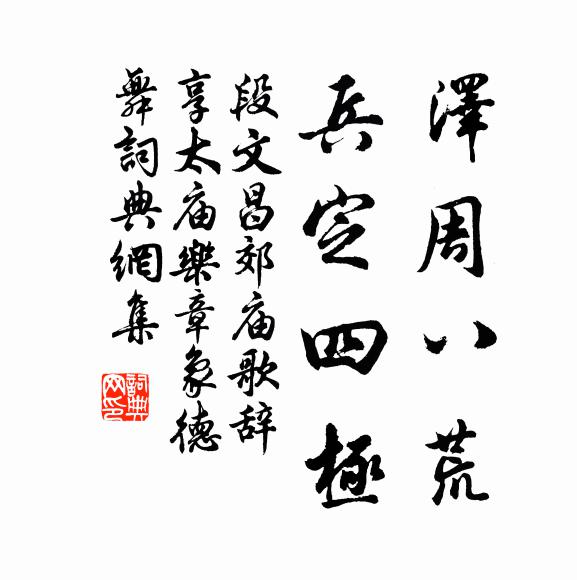 澤周八荒
兵定四極
段文昌郊庙歌辞
享太庙樂章象德
舞詞典網集
詞典
网印